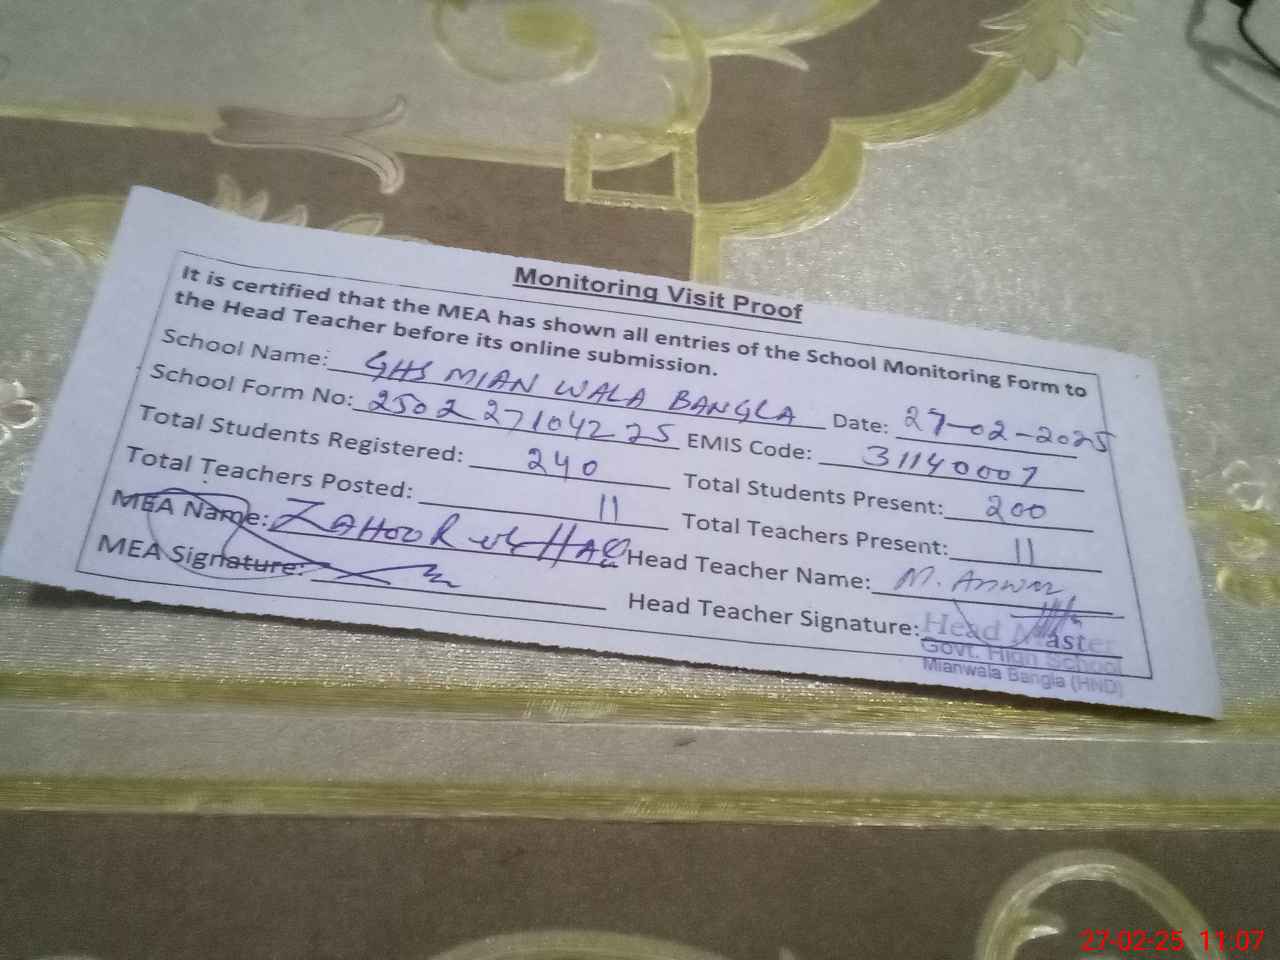 Monitoring Visit Proof
It is certified that the MEA has shown all entries of the School Monitoring Form to
the Head Teacher before its online submission.
School Name: GHS MIAN WALA BANGLA Date: 27-02-2025
School Form No: 250227104225 EMIS Code: 31140007
Total Students Registered: 240 Total Students Present: 200
Total Teachers Posted: 11 Total Teachers Present: 11
MEA Name: ZAHOOR ul HAQ Head Teacher Name: M. Anwar
MEA Signature: Head Teacher Signature:
Head Master
Govt. High School
Mianwala Bangla (HND)
27-02-25 11:07